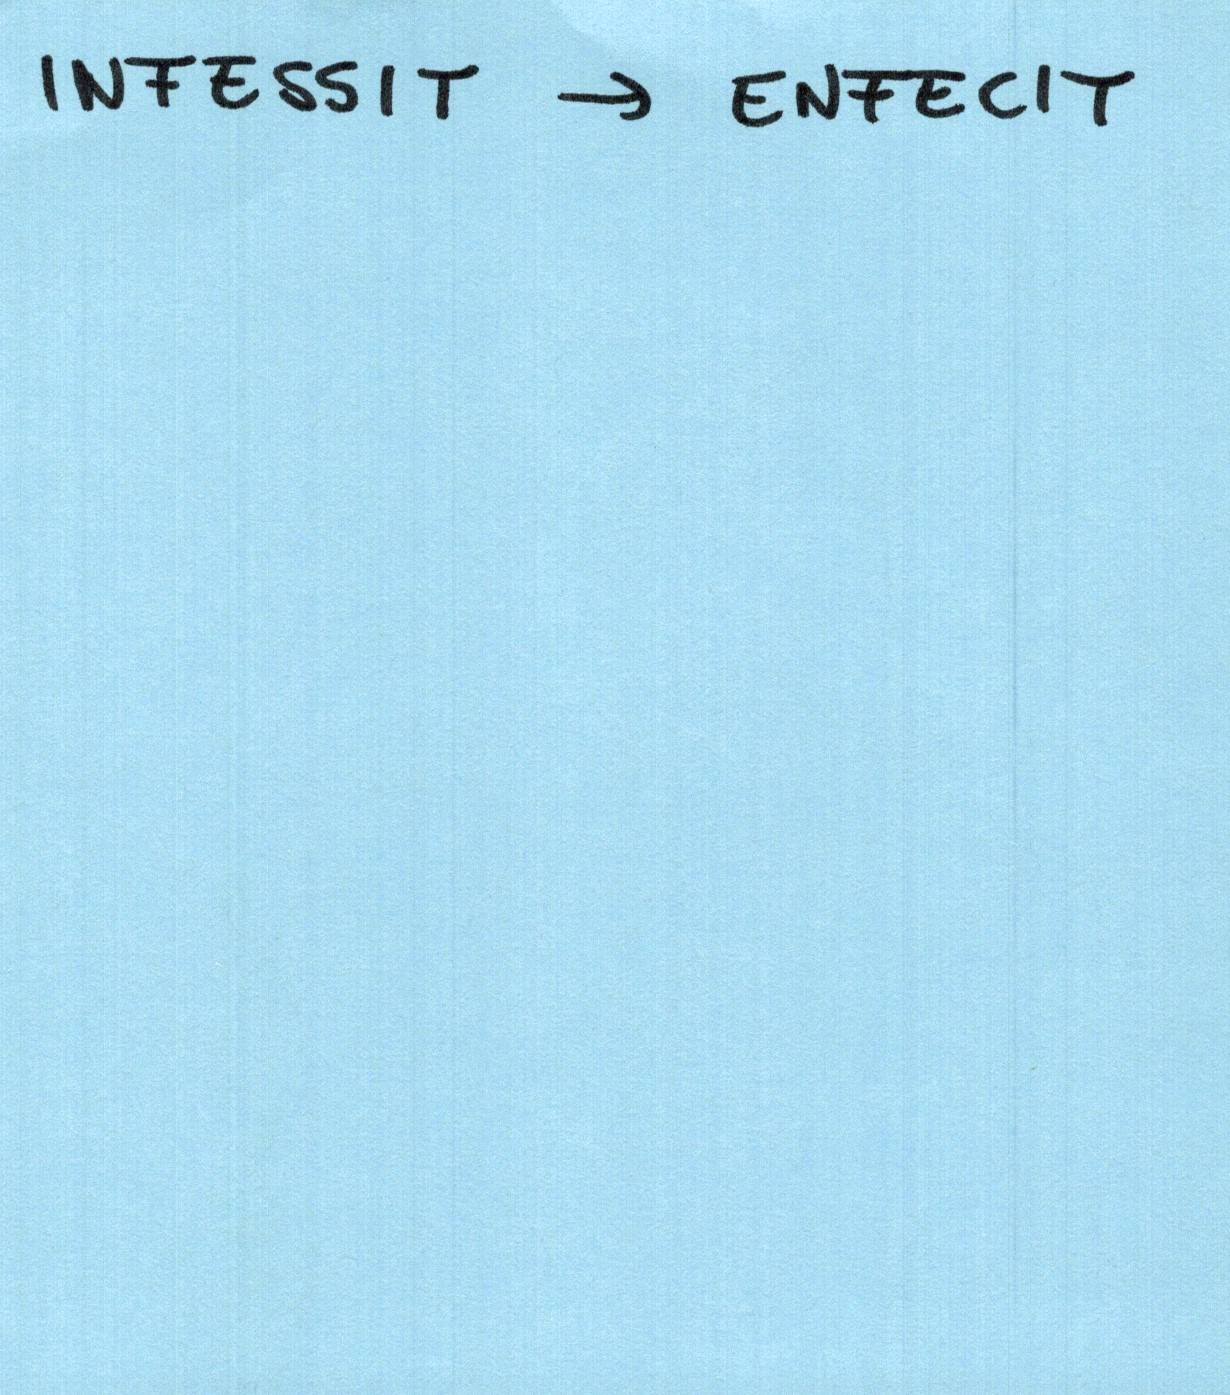 INFESSIT → ENFECIT